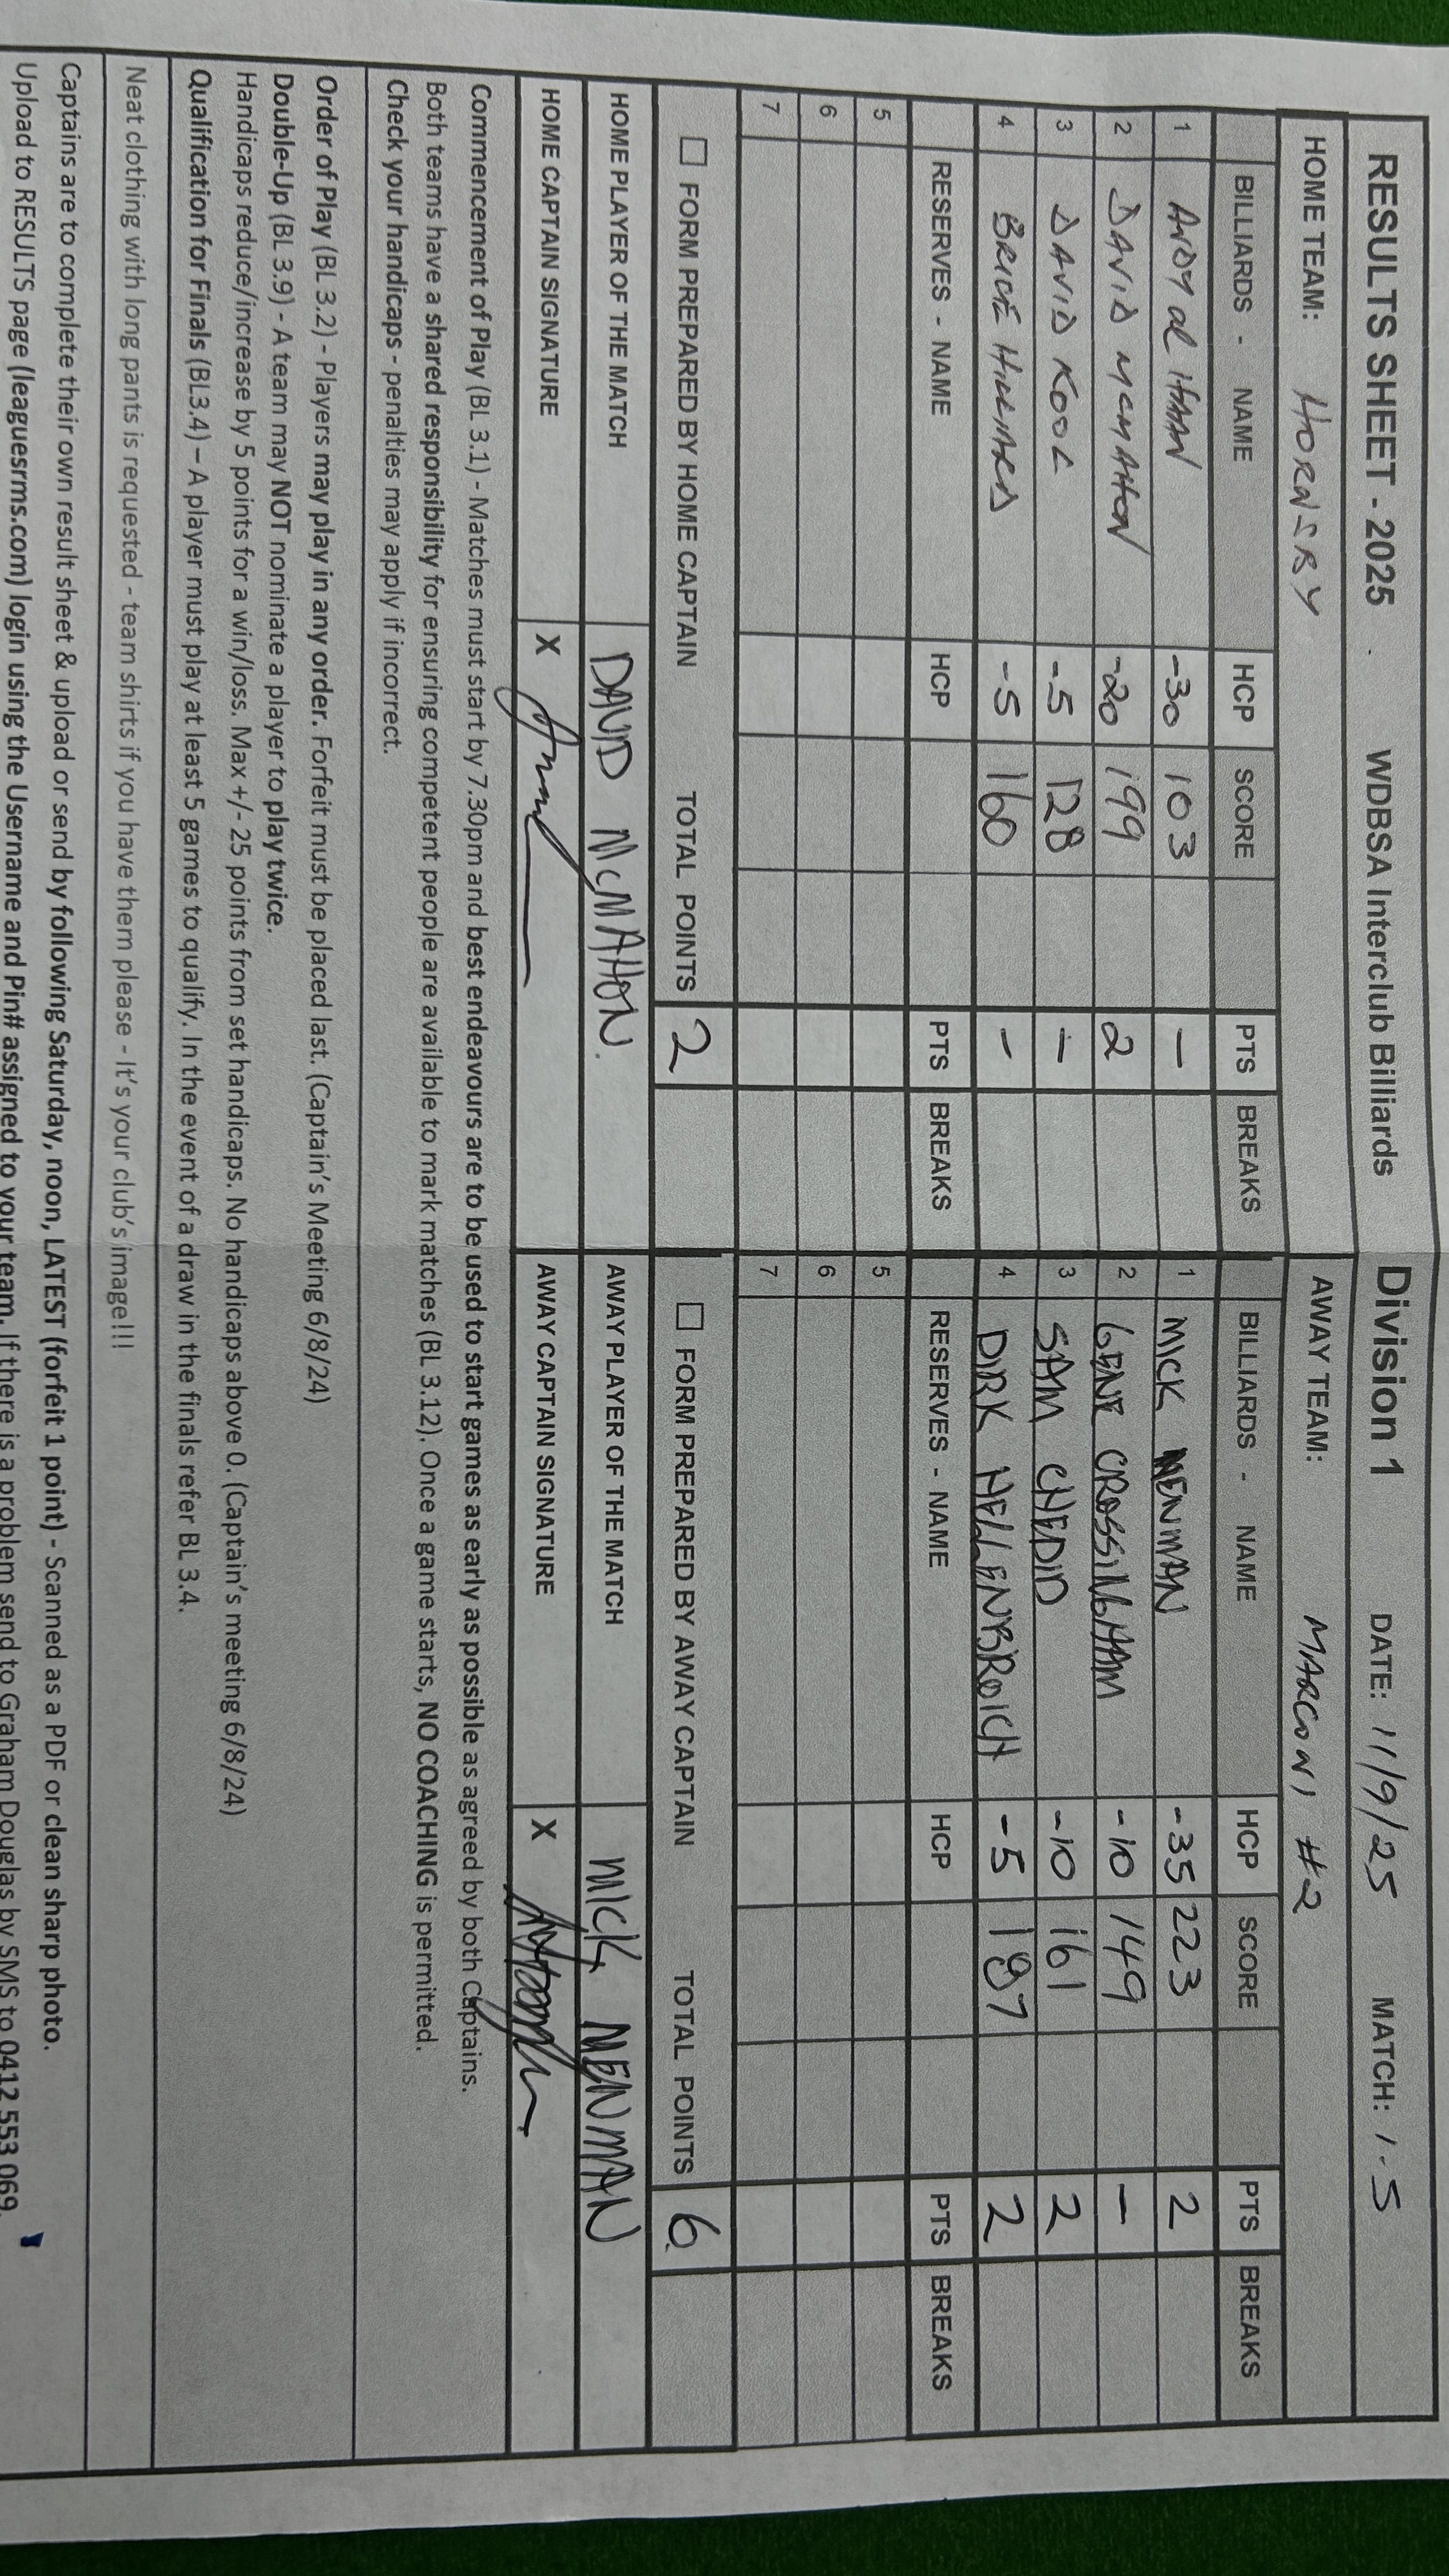 RESULTS SHEET - 2025 . WDBSA Interclub Billiards Division 1 DATE: 11/9/25 MATCH: 15
HOME TEAM: HORNSBY AWAY TEAM: MARCONI #2
BILLIARDS - NAME HCP SCORE PTS BREAKS BILLIARDS - NAME HCP SCORE PTS BREAKS
1 ANDY de HAAN -30 103 - 1 MICK MENMAN -35 223 2
2 DAVID MCMAHON -20 199 2 2 GENE CROSSINGHAM -10 149 -
3 DAVID KOOL -5 128 - 3 SAM CHEDID -10 161 2
4 -5 160 - 4 DIRK HELLENBROICH -5 187 2
RESERVES - NAME HCP PTS BREAKS RESERVES - NAME HCP PTS BREAKS
5 5
6 6
7 7
FORM PREPARED BY HOME CAPTAIN TOTAL POINTS 2 FORM PREPARED BY AWAY CAPTAIN TOTAL POINTS 6
HOME PLAYER OF THE MATCH DAVID MCMAHON. AWAY PLAYER OF THE MATCH MICK MENMAN
HOME CAPTAIN SIGNATURE X AWAY CAPTAIN SIGNATURE X
Commencement of Play (BL 3.1) - Matches must start by 7.30pm and best endeavours are to be used to start games as early as possible as agreed by both Captains.
Both teams have a shared responsibility for ensuring competent people are available to mark matches (BL 3.12). Once a game starts, NO COACHING is permitted.
Check your handicaps - penalties may apply if incorrect.
Order of Play (BL 3.2) - Players may play in any order. Forfeit must be placed last. (Captain's Meeting 6/8/24)
Double-Up (BL 3.9) - A team may NOT nominate a player to play twice.
Handicaps reduce/increase by 5 points for a win/loss. Max +/- 25 points from set handicaps. No handicaps above 0. (Captain's meeting 6/8/24)
Qualification for Finals (BL3.4) – A player must play at least 5 games to qualify. In the event of a draw in the finals refer BL 3.4.
Neat clothing with long pants is requested - team shirts if you have them please - It's your club's image!!!
Captains are to complete their own result sheet & upload or send by following Saturday, noon, LATEST (forfeit 1 point) - Scanned as a PDF or clean sharp photo.
Upload to RESULTS page (leaguesrms.com) login using the Username and Pin# assigned to your team. If there is a problem send to Graham Douglas by SMS to 0412 553 069.